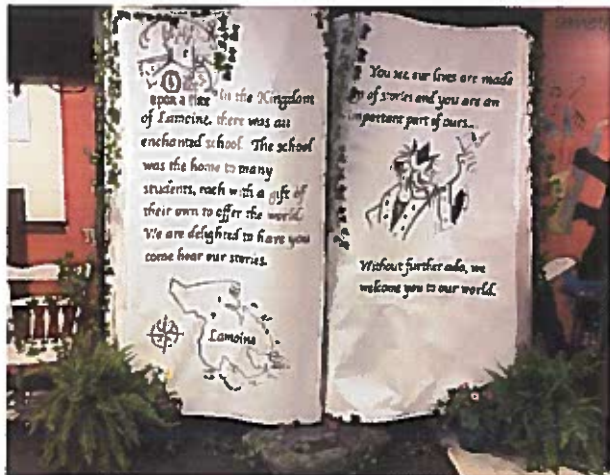 upon a time "In the Kingdom
of Lamoine, there was an
enchanted school. The school
was the home to many
students, each with a gift of
their own to offer the world.
We are delighted to have you
come hear our stories.
Lamoine
You see, our lives are made
of stories and you are an
important part of ours...
Without further ado, we
welcome you to our world.